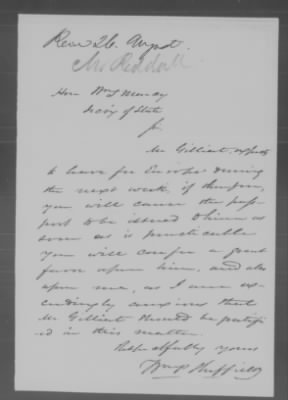 Rec'd 26 August
Mr Reddall
Hon Wm L Marcy
Secy of State
Sir
Mr Gilliat expects
to leave for Europe during
the next week, if therefore,
you will cause the pass-
port to be issued to him as
soon as is practicable
you will confer a great
favor upon him, and also
upon me, as I am ex-
ceedingly anxious that
Mr Gilliat should be gratifi-
ed in this matter.
Respectfully yours
Wm P Sheffield